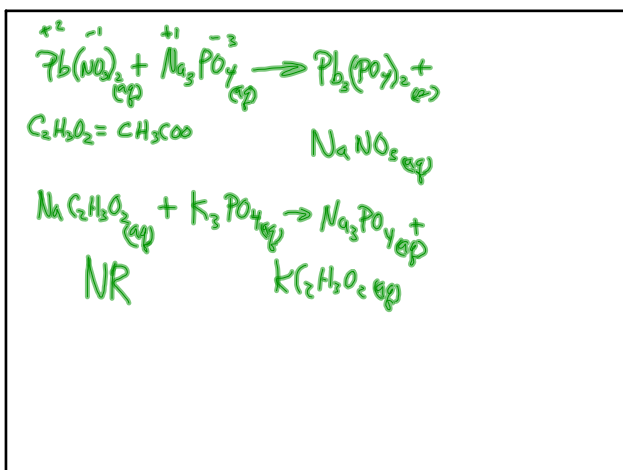 +2 -1 +1 -3
Pb(NO3)2(aq) + Na3PO4(aq) → Pb3(PO4)2(s) +
C2H3O2 = CH3COO
NaNO3(aq)
NaC2H3O2(aq) + K3PO4(aq) → Na3PO4(aq) +
NR KC2H3O2(aq)